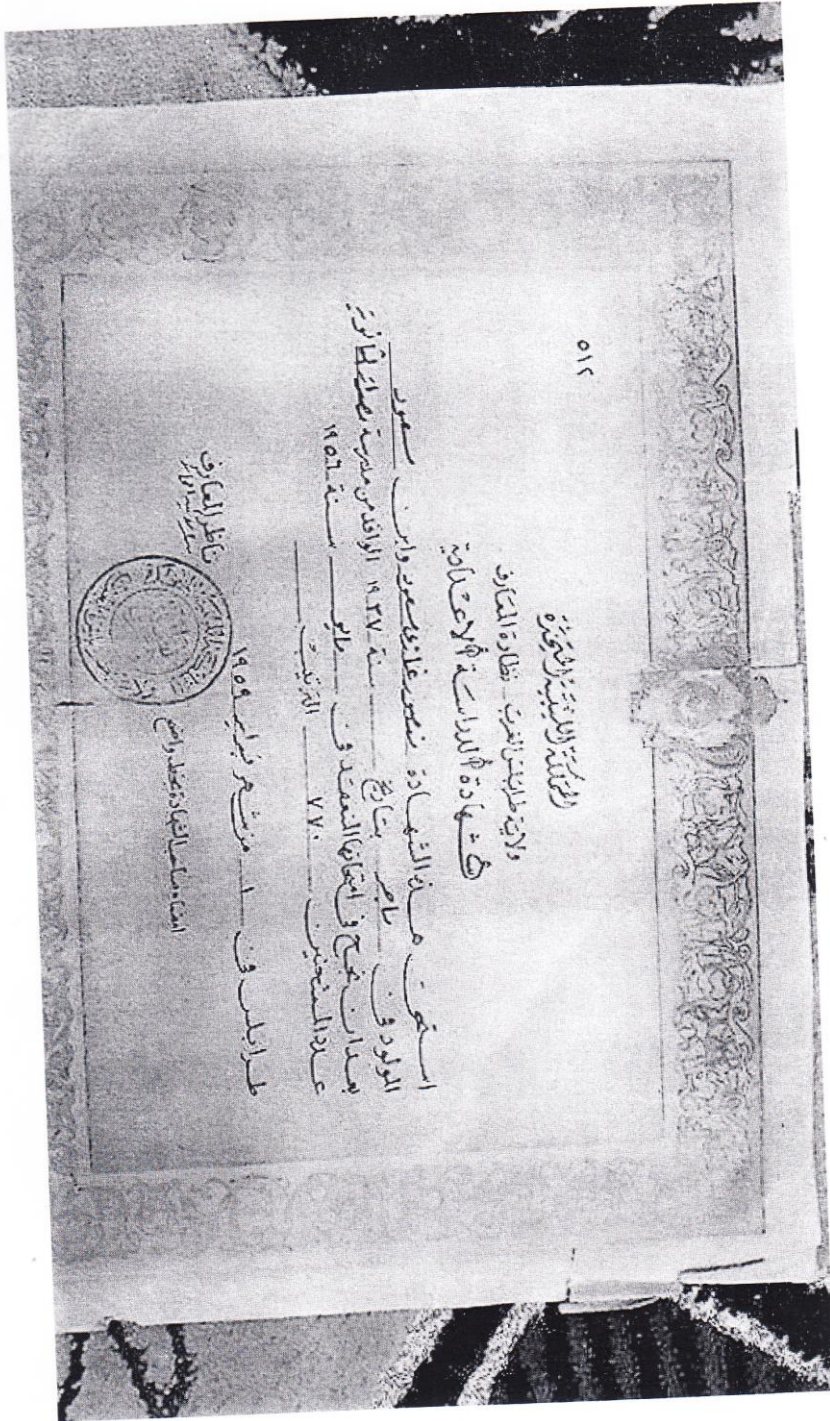 ٥١٢
المملكة الليبية المتحدة
ولاية طرابلس الغرب - نظارة المعارف
شهادة الدراسة الاعدادية
استحق هذه الشهادة منصور غازي سعود وابن سعود
المولود في ماجر بتاريخ سنة ١٩٣٧ الوافد من مدرسة الثانوية
بعد ان نجح في امتحانها المنعقد في مايو سنة ١٩٥٦
عدد الممتحنين ٧٧٠ الترتيب
طرابلس في ١ من شهر فبراير ١٩٥٩
امضاء صاحب الشهادة بخط واضح
ناظر المعارف